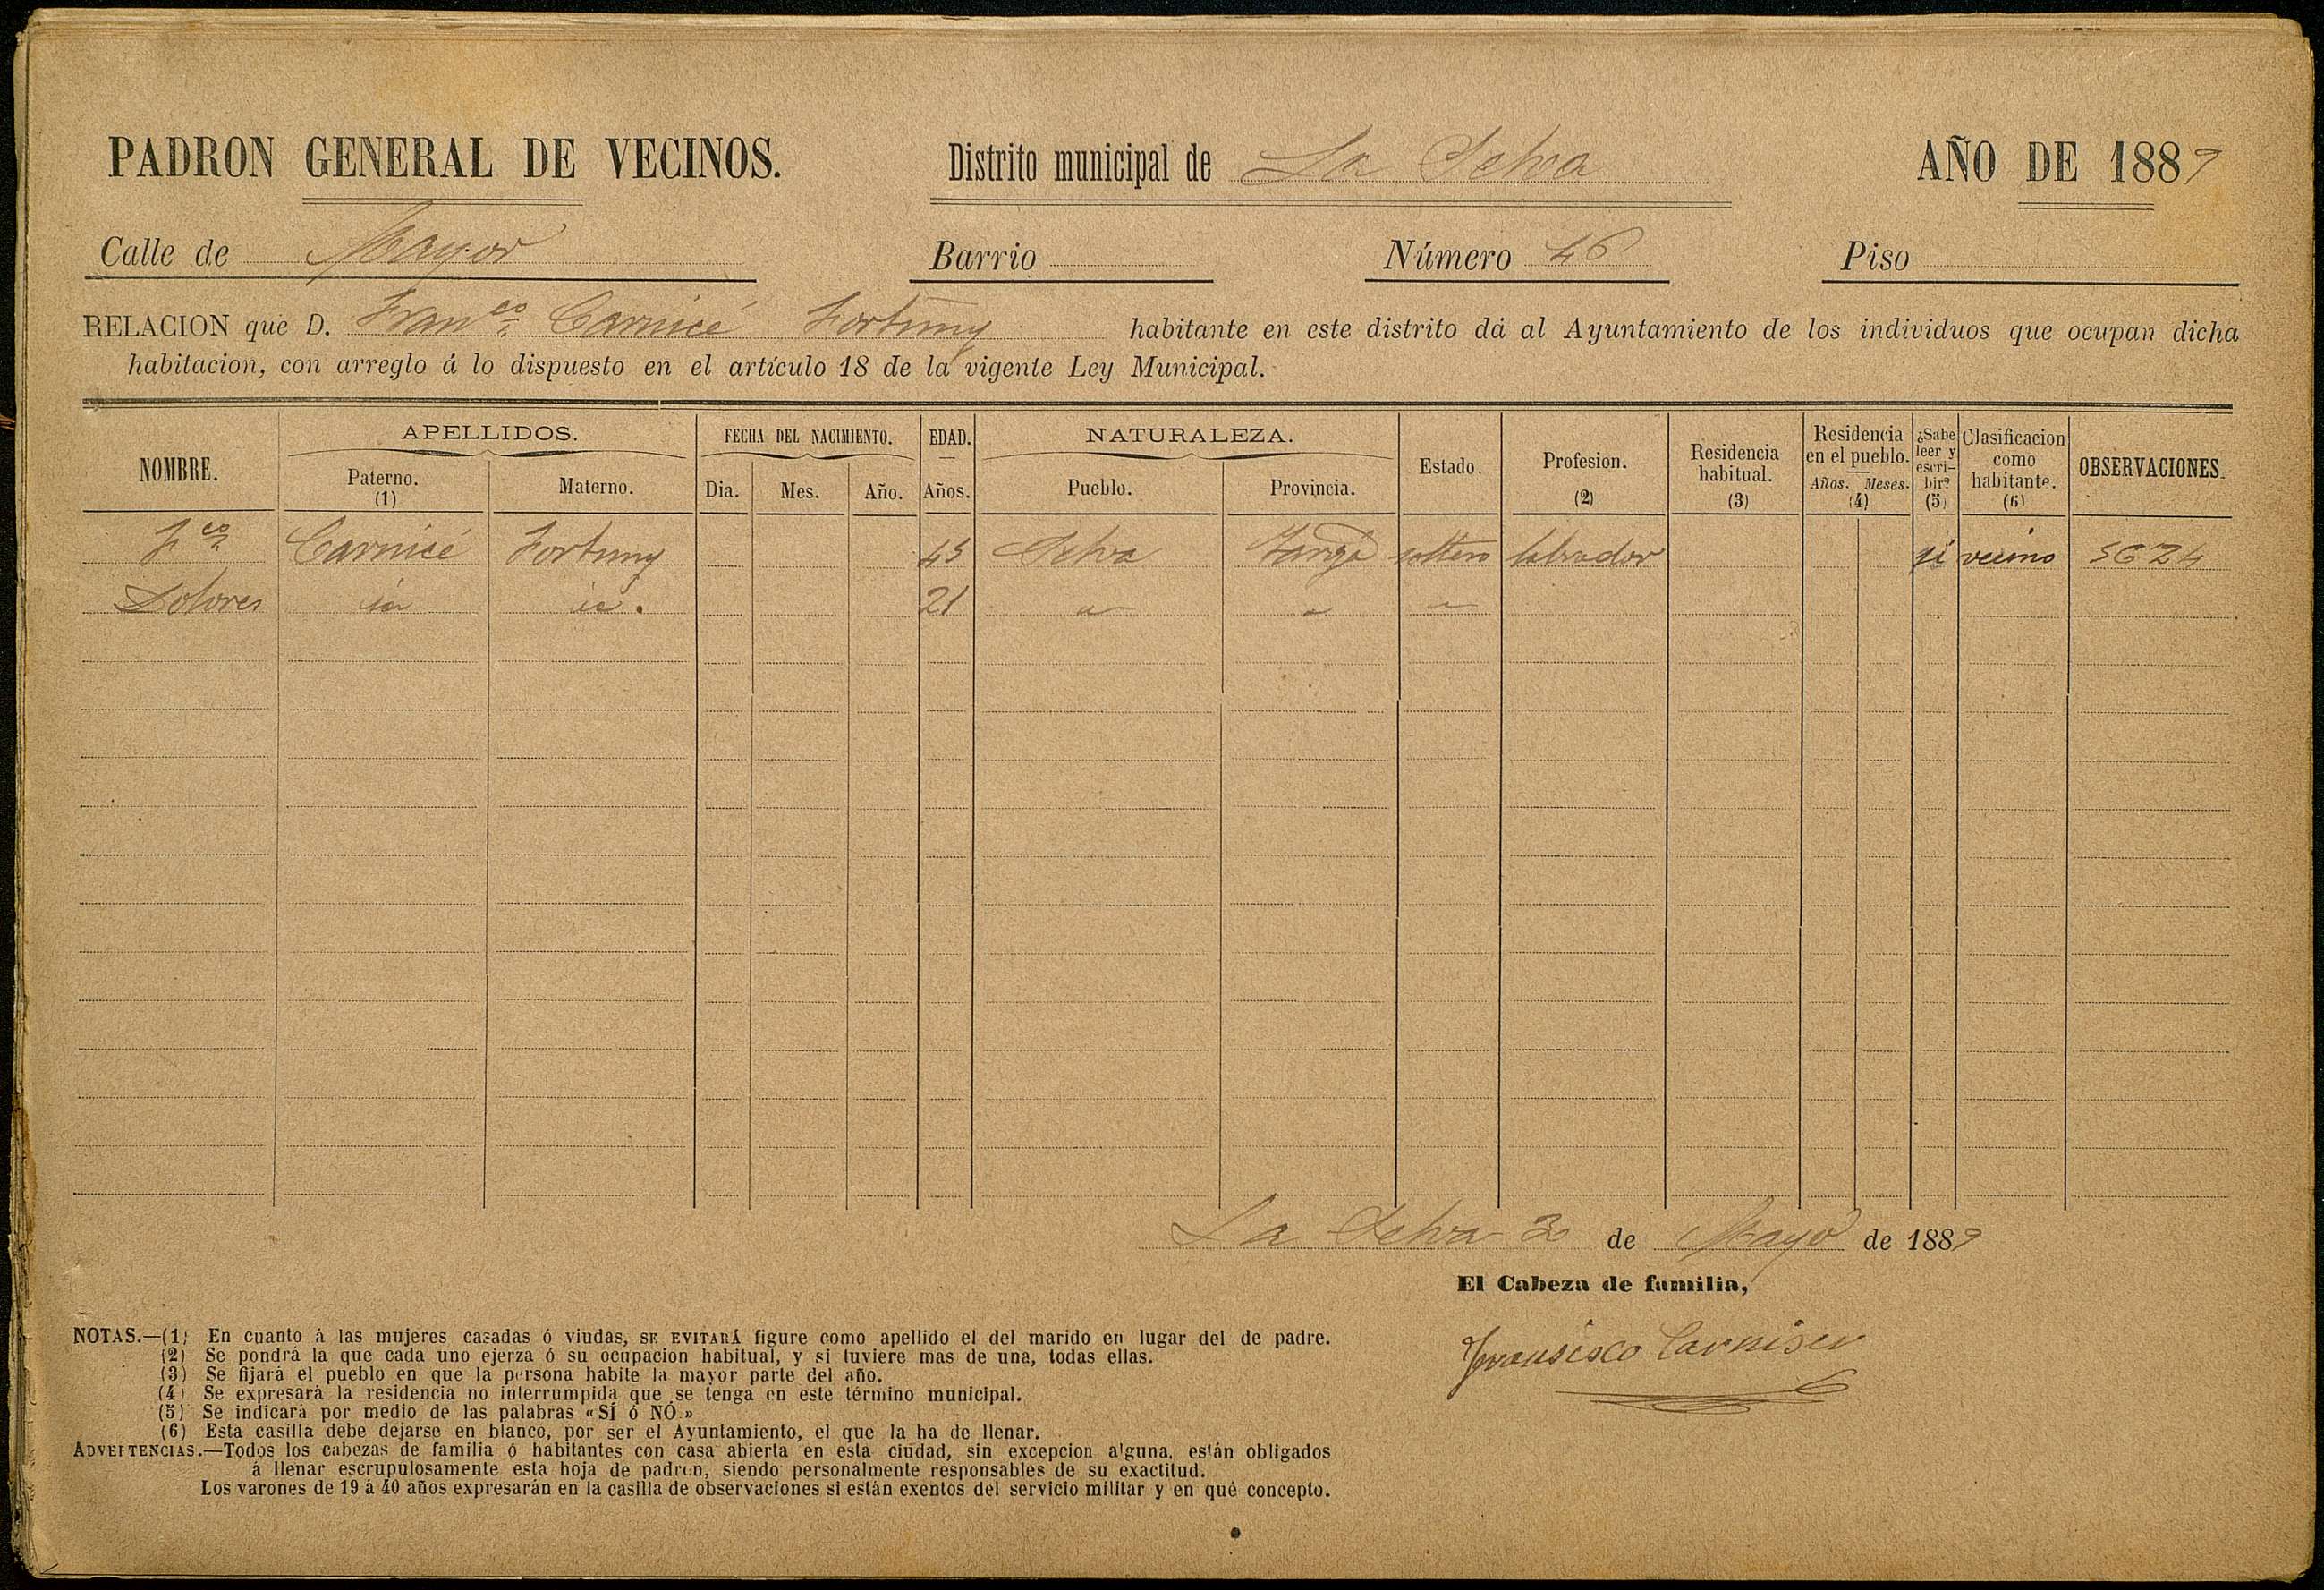 PADRON GENERAL DE VECINOS. Distrito municipal de La Selva AÑO DE 1889
Calle de Mayor Barrio Número 46 Piso
RELACION que D. Fran.co Carnicé Fortuny habitante en este distrito dá al Ayuntamiento de los individuos que ocupan dicha
habitacion, con arreglo á lo dispuesto en el artículo 18 de la vigente Ley Municipal.
NOMBRE. APELLIDOS. Paterno. (1) Materno. FECHA DEL NACIMIENTO. Dia. Mes. Año. EDAD. Años. NATURALEZA. Pueblo. Provincia. Estado. Profesion. (2) Residencia habitual. (3) Residencia en el pueblo. Años. Meses. (4) ¿Sabe leer y escribir? (5) Clasificacion como habitante. (6) OBSERVACIONES.
F.co Carnicé Fortuny 45 Selva Tarrga soltero labrador si vecino 5624
Dolores id id. 21 " " "
La Selva 2 de Mayo de 1889
El Cabeza de familia,
Fransisco Carniser
NOTAS.—(1) En cuanto á las mujeres casadas ó viudas, SE EVITARÁ figure como apellido el del marido en lugar del de padre.
(2) Se pondrá la que cada uno ejerza ó su ocupacion habitual, y si tuviere mas de una, todas ellas.
(3) Se fijará el pueblo en que la persona habite la mayor parte del año.
(4) Se expresará la residencia no interrumpida que se tenga en este término municipal.
(5) Se indicará por medio de las palabras «SÍ ó NÓ.»
(6) Esta casilla debe dejarse en blanco, por ser el Ayuntamiento, el que la ha de llenar.
ADVERTENCIAS.—Todos los cabezas de familia ó habitantes con casa abierta en esta ciudad, sin excepcion alguna, están obligados
á llenar escrupulosamente esta hoja de padron, siendo personalmente responsables de su exactitud.
Los varones de 19 á 40 años expresarán en la casilla de observaciones si están exentos del servicio militar y en qué concepto.